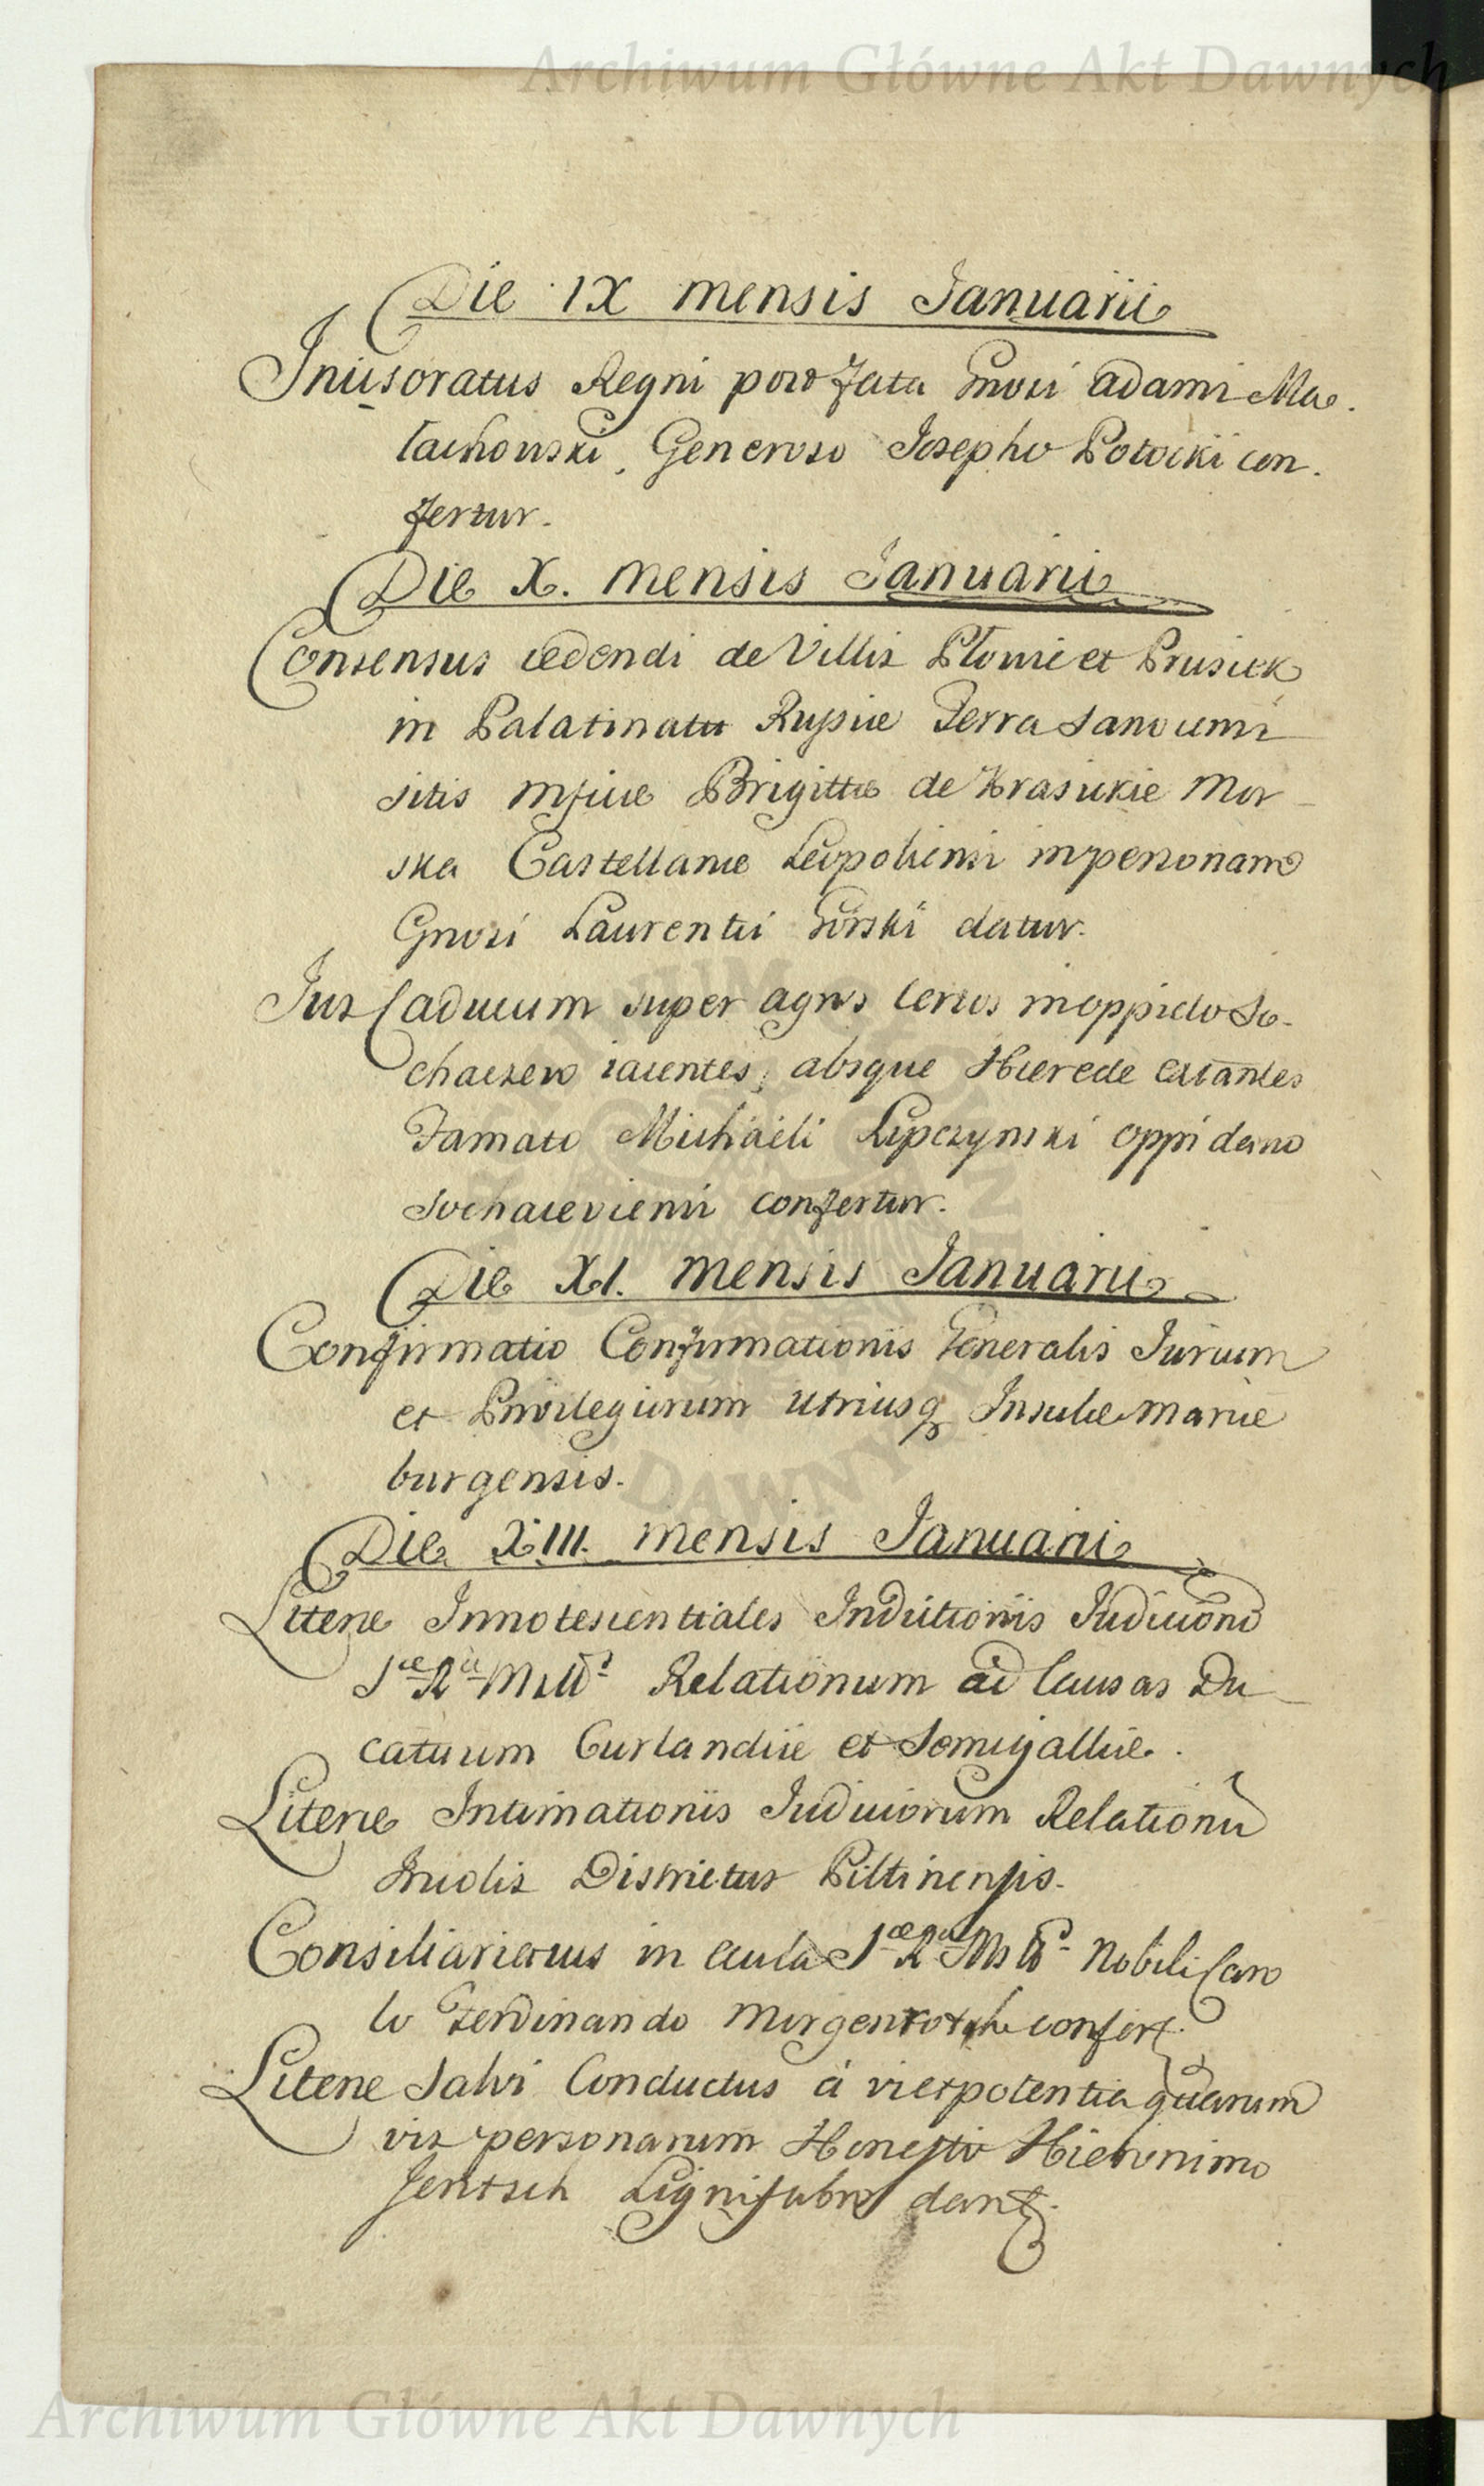 Archiwum Główne Akt Dawnych
Die IX mensis Januarii
Incisoratus Regni post fata Gnosi Adami Ma-
łachowski, Generoso Josepho Potocki con-
fertur.
Die X. mensis Januarii
Consensus cedendi de Villis Płonie et Prusiek
in Palatinatu Russiae Terra Sanocensi
sitis Mficae Brigittae de Krasickie Mor-
ska Castellanae Leopoliensi in personam
Gnosi Laurentii Gorski datur.
Jus Caducum super agros certos in oppido So-
chaczew iacentes, absque Haerede extantes
Famato Michaëli Lipczynski oppidano
Sochaceviensi confertur.
Die XI. mensis Januarii
Confirmatio Confirmationis Generalis Jurium
et Privilegiorum utriusq Insulae Mariae
burgensis.
Die XIII. mensis Januarii
Literae Innotescentiales Indictionis Judiciorum
Sae Rae Mttis Relationum ad Causas Du-
catuum Curlandiae et Semigalliae.
Literae Intimationis Judiciorum Relationu
Districtus Piltinensis.
Consiliariatus in aula Sae Rae Mttis Nobili Caro
lo Ferdinando Morgenroth confert.
Literae Salvi Conductus à vi et potentia quarum
vis personarum Honesto Hieronimo
Jentsch Lignifabro dant.
Archiwum Główne Akt Dawnych